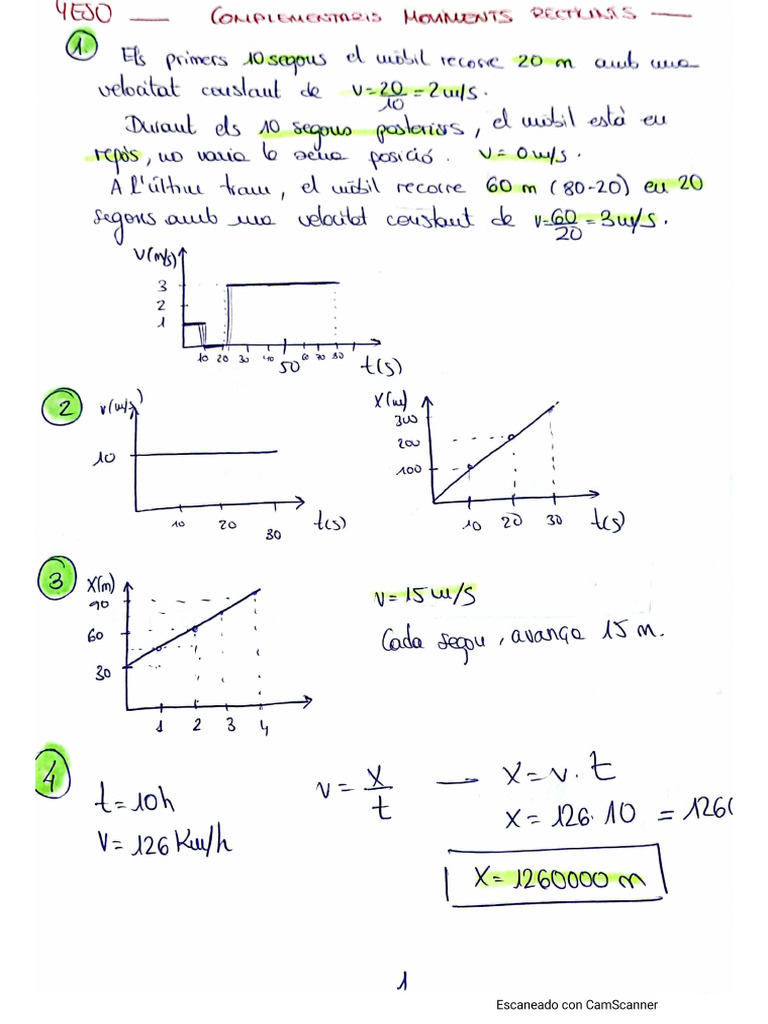 4ESO — COMPLEMENTARIS MOVIMENTS RECTILINIS —
1. Els primers 10 segons el mòbil recorre 20 m amb una
velocitat constant de v=20/10=2m/s.
Durant els 10 segons posteriors, el mòbil està en
repòs, no varia la seva posició. v=0m/s.
A l'últim tram, el mòbil recorre 60 m (80-20) en 20
segons amb una velocitat constant de v=60/20=3m/s.
V(m/s)
3
2
1
10 20 30 40 50 60 70 80 t(s)
2 v(m/s)
10
10 20 30 t(s)
X(m)
300
200
100
10 20 30 t(s)
3 X(m)
90
60
30
1 2 3 4
v=15m/s
Cada segon, avança 15 m.
4
t=10h
V=126 Km/h
v=x/t — x=v·t
x=126·10 = 1260
x=1260000 m
1
Escaneado con CamScanner